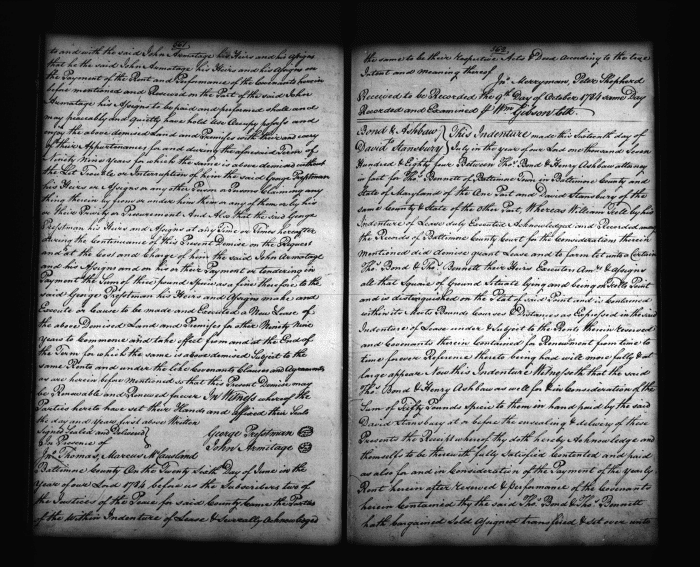 561
to and with the said John Armitage his Heirs and his Assigns
that he the said John Armitage his Heirs and his Assigns on
the Payment of the Rent and Performance of the Covenants herein
before mentioned and Reserved on the Part of the said John
Armitage his Assigns to be paid and performed shall and
may peaceably and quietly have hold use Occupy possess and
enjoy the above demised land and Premises with their and every
of their Appurtenances for and during the aforesaid Term of
Ninety Nine years for which the same is above demised without
the Let Trouble or Interruption of him the said George Presstman
his Heirs or Assigns or any other Person or Persons Claiming any
thing therein by from or under him them or any of them or by his
or their Privity or Procurement And Also that the said George
Presstman his Heirs and Assigns at any Time or Times hereafter
during the Continuance of this Present Demise on the Request
and at the Cost and Charge of him the said John Armitage
and his Assigns and on his or their Payment or tendering in
Payment the Sum of three pound Specie as a fine therefore to the
said George Presstman his Heirs and Assigns make and
Execute or Cause to be made and Executed a New Lease of
the above Demised Land and Premises for other Ninety Nine
years to Commence and take effect from and at the End of
the Term for which the same is above demised Subject to the
same Rents and under the like Covenants Clauses and Agreements
as are herein before Mentioned so that this Present Demise may
be Renewable and Renewed forever In Witness whereof the
Parties hereto have set their Hands and affixed their Seals
the day and year first above Written
Signed Sealed and Delivered
In Presence of
George Presstman
John Armitage
Jno. Thomas, Marcus McCausland
Baltimore County On the Twenty Sixth Day of June in the
year of our Lord 1784 before us the Subscribers two of
the Justices of the Peace for said County Came the Parties
of the Within Indenture of Lease & Severally Acknowledged
562
the same to be their Respective Acts & Deed According to the true
Intent and Meaning thereof
Jno. Merryman, Peter Shepherd
Received to be Recorded the 9th Day of October 1784 same Day
Recorded and Examined Wm. Gibson Clk.
Bond & Ashbaw
David Stansbury
This Indenture made this Sixteenth day of
July in the year of our Lord one thousand Seven
Hundred & Eighty four Between Thos. Bond & Henry Ashlaw attorney
in fact for Thos. Bennett of Baltimore Town in Baltimore County and
State of Maryland of the One Part and David Stansbury of the
same County & State of the other Part Whereas William Fell by his
Indenture of Lease duly Executed Acknowledged and Recorded among
the Records of Baltimore County Court for the Considerations therein
Mentioned did demise grant Lease and to farm let unto Certain
Thos. Bond & Thos. Bennett their Heirs Executors Amrs & Assigns
all that Square of Ground Situate lying and being on Fells Point
and is distinguished on the Plat of said Point and is Contained
within its Meets Bounds Courses & Distances as Expressed in the said
Indenture of Lease under & Subject to the Rents therein reserved
and Covenants therein Contained for Renewment from time to
time forever Reference thereto being had will more fully & at
large appear Now this Indenture Witnesseth that the said
Thos. Bond & Henry Ashlaw as well for & in Consideration of the
Sum of Fifty Pounds Specie to them in hand paid by the said
David Stansbury at or before the ensealing & delivery of these
Presents the Receipt whereof they doth hereby Acknowledge and
themselfs to be therewith fully Satisfied Contented and paid
as also for and in Consideration of the Payment of the yearly
Rent herein after reserved & performance of the Covenants
herein Contained they the said Thos. Bond & Thos. Bennett
hath bargained Sold Assigned transferred & set over unto